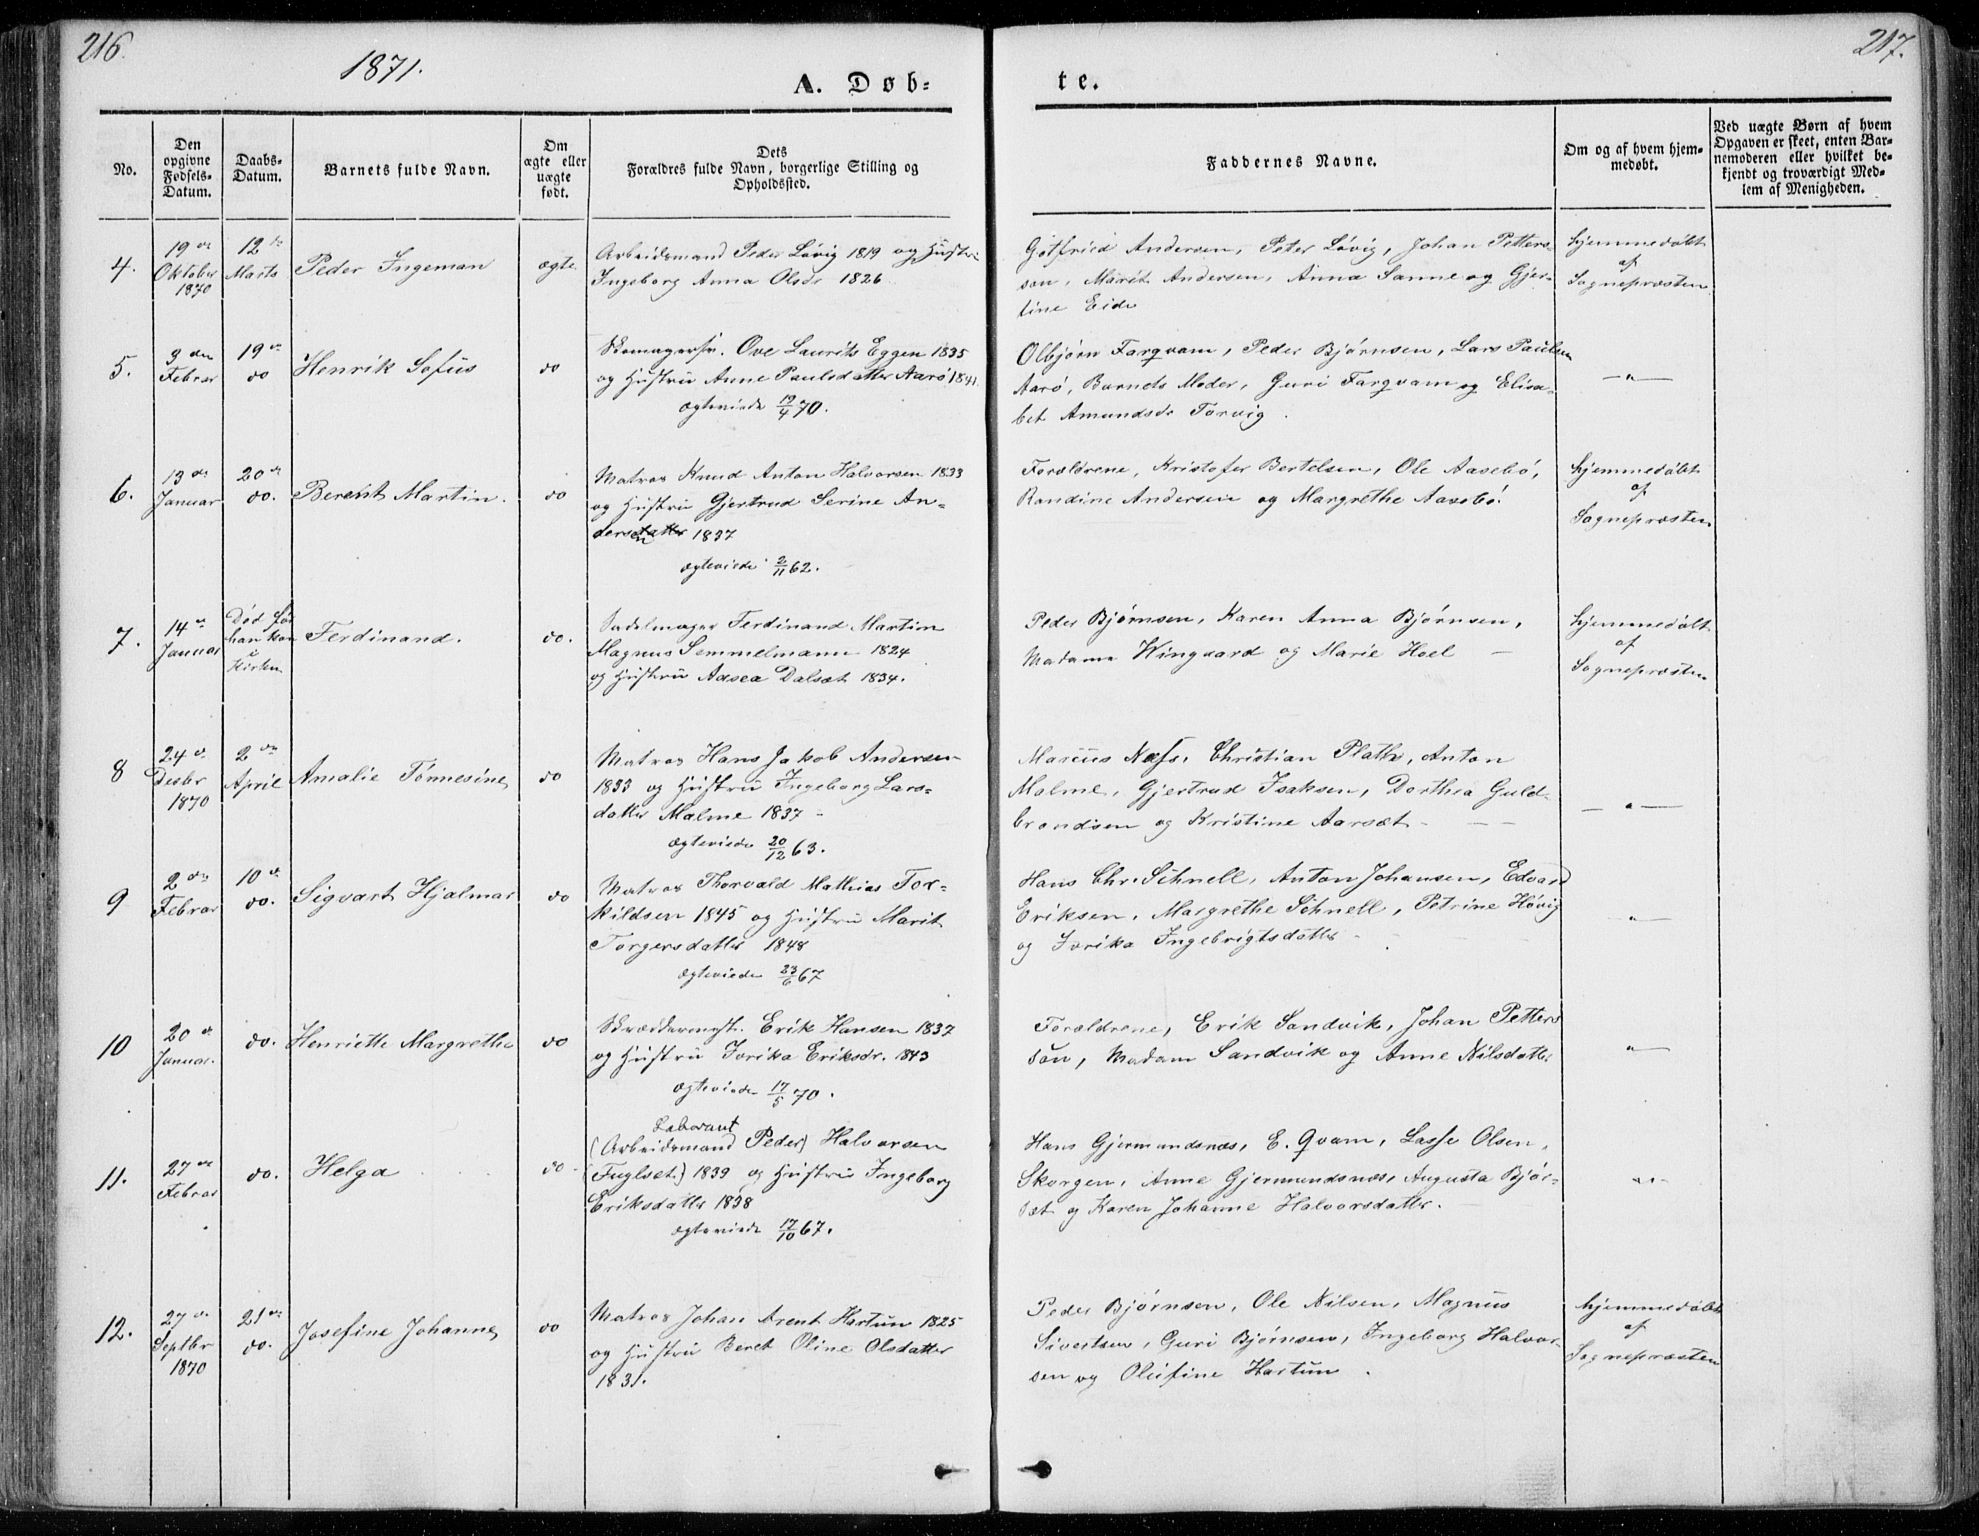 216.
1871.
A. Døb-
te.
217.
No.
Den
opgivne
Fødsels-
Datum.
Daabs-
Datum.
Barnets fulde Navn.
Om
ægte eller
uægte
født.
Dets
Forældres fulde Navn, borgerlige Stilling og
Opholdssted.
Faddernes Navne.
Om og af hvem hjem-
medøbt.
Ved uægte Børn af hvem
Opgaven er skeet, enten Bar-
nemoderen eller hvilket be-
kjendt og troværdigt Med-
lem af Menigheden.
4.
19de
Oktober
1870
12te
Marts
Peder Ingeman
ægte
Arbeidsmand Peder Løvig 1819 og Hustru
Ingeborg Anna Olsdr 1826
Gotfried Andersen, Peter Løvig, Johan Petters-
son, Marit Andersen, Anna Sanne og Gjer-
tine Eide
hjemmedøbt
af
Sognepræsten
5.
3den
Februar
19de
do
Henrik Sofus
do
Skomagersv. Ove Laurits Eggen 1835
og Hustru Anne Paulsdatter Aarø 1841.
ægteviede 19/4 70.
Olbjørn Farqvam, Peder Bjørnsen, Lars Paulsen
Aarø, Barnets Moder, Guri Farqvam og Elisa-
bet Amundsdr Torvig.
—"—
6.
13de
Januar
20de
do.
Berent Martin.
do
Matros Knud Anton Halvorsen 1833
og Hustru Gjertrud Serine An-
dersen 1837
ægteviede 2/11 62.
Forældrene, Kristofer Bertelsen, Ole Aasebø,
Randine Andersen og Margrethe Aasebø.
hjemmedøbt
af
Sognepræsten
7.
14de
Januar
Død før
han kom
i
Kirken
Ferdinand.
do.
Sadelmager Ferdinand Martin
Magnus Semmelmann 1824
og Hustru Aasea Dalsæt 1834.
Peder Bjørnsen, Karen Anna Bjørnsen,
Madame Wingaard og Marie Hoel —
hjemmedøbt
af
Sognepræsten
8
24de
Decbr
1870
2den
April
Amalie Tønnesine
do
Matros Hans Jakob Andersen
1833 og Hustru Ingeborg Lars-
datter Malme 1837 -
ægteviede 20/12 63.
Marius Næss, Christian Plath, Anton
Malme, Gjertrud Isaksen, Dorthea Guld-
brandsen og Kristine Aarsæt
—"—
9
2den
Februar
10de
do.
Sigvart Hjalmar
do
Matros Thorvald Mathias Tor-
kildsen 1845 og Hustru Marit
Torgersdatter 1848
ægteviede 23/6 67
Hans Chr. Schnell, Anton Johansen, Edvard
Eriksen, Margrethe Schnell, Petrine Høvig
og Jvrika Ingebrigtsdatter -
—"—
10
20de
Januar.
do.
Henriette Margrethe
do
Skræddermgst. Erik Hansen 1837
og Hustru Jvrika Eriksdr. 1843
ægteviede 17/5 70.
Forældrene, Erik Sandvik, Johan Petters
søn, Madam Sandvik og Anne Nilsdatter
—"—
11.
27de
Februar
do.
Helga
do
Laborant
(Arbeidsmand Peder) Halvorsen
(Fuglset) 1839 og Hustru Ingeborg
Eriksdatter 1838
ægteviede 17/10 67.
Hans Gjermundsnæs, E. Qvam, Lasse Olsen,
Skorgen, Anne Gjermundsnæs, Augusta Bjør-
sæt og Karen Johanne Halvorsdatter.
-"-
12.
27de
Septbr
1870
21de
do.
Josefine Johanne
do
Matros Johan Arent Hartun 1825
og Hustru Beret Oline Olsdatter
1831.
Peder Bjørnsen, Ole Nilsen, Magnus
Sivertsen, Guri Bjørnsen, Ingeborg Halvor-
sen og Olufine Hartun.
hjemmedøbt
af
Sognepræsten